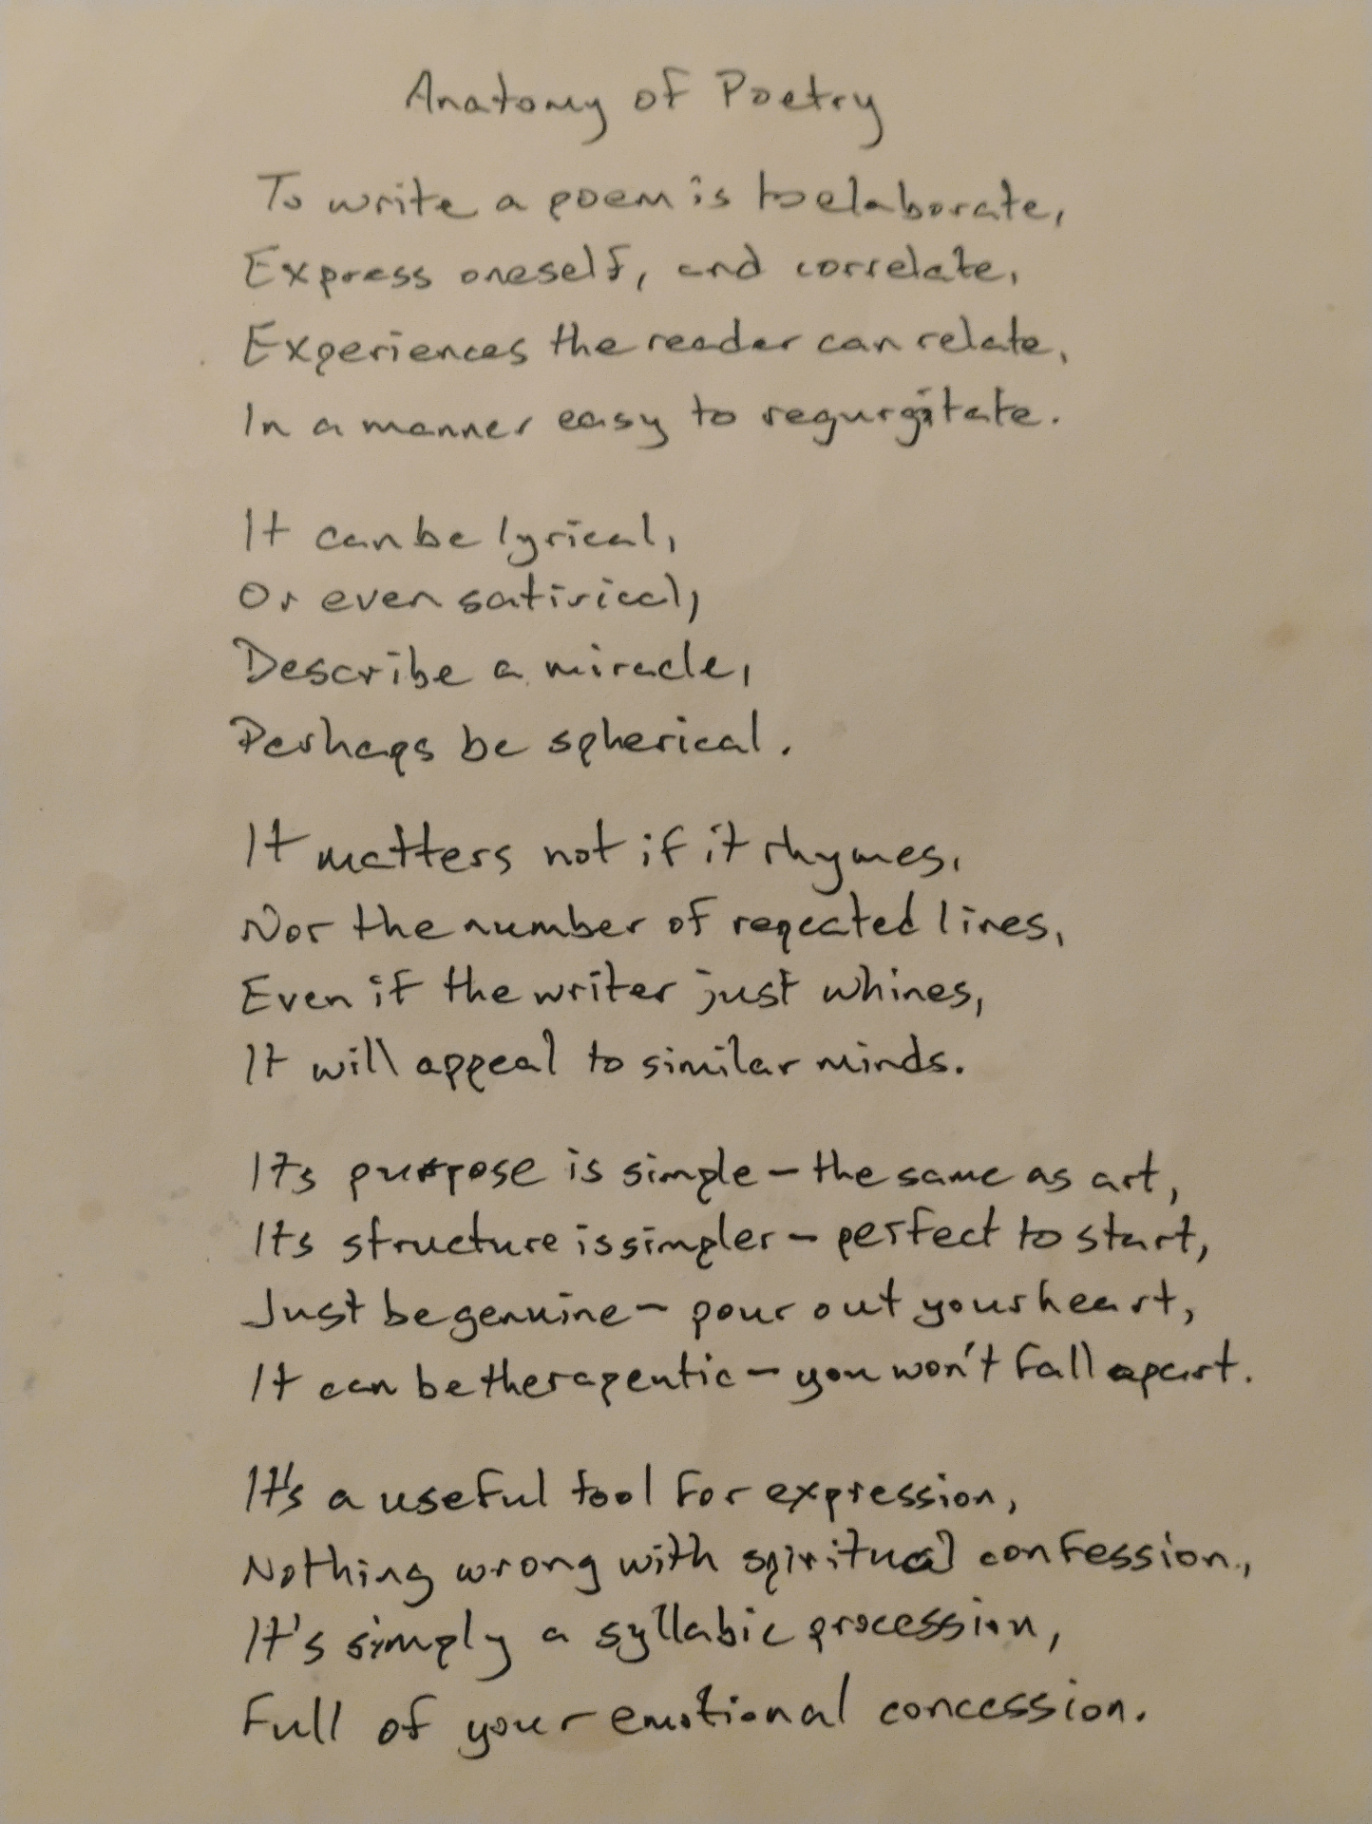 Anatomy of Poetry
To write a poem is to elaborate,
Express oneself, and correlate,
Experiences the reader can relate,
In a manner easy to regurgitate.
It can be lyrical,
Or even satirical,
Describe a miracle,
Perhaps be spherical.
It matters not if it rhymes,
Nor the number of repeated lines,
Even if the writer just whines,
It will appeal to similar minds.
Its purpose is simple - the same as art,
Its structure is simpler - perfect to start,
Just be genuine - pour out your heart,
It can be therapeutic - you won't fall apart.
It's a useful tool for expression,
Nothing wrong with spiritual confession,
It's simply a syllabic procession,
Full of your emotional concession.